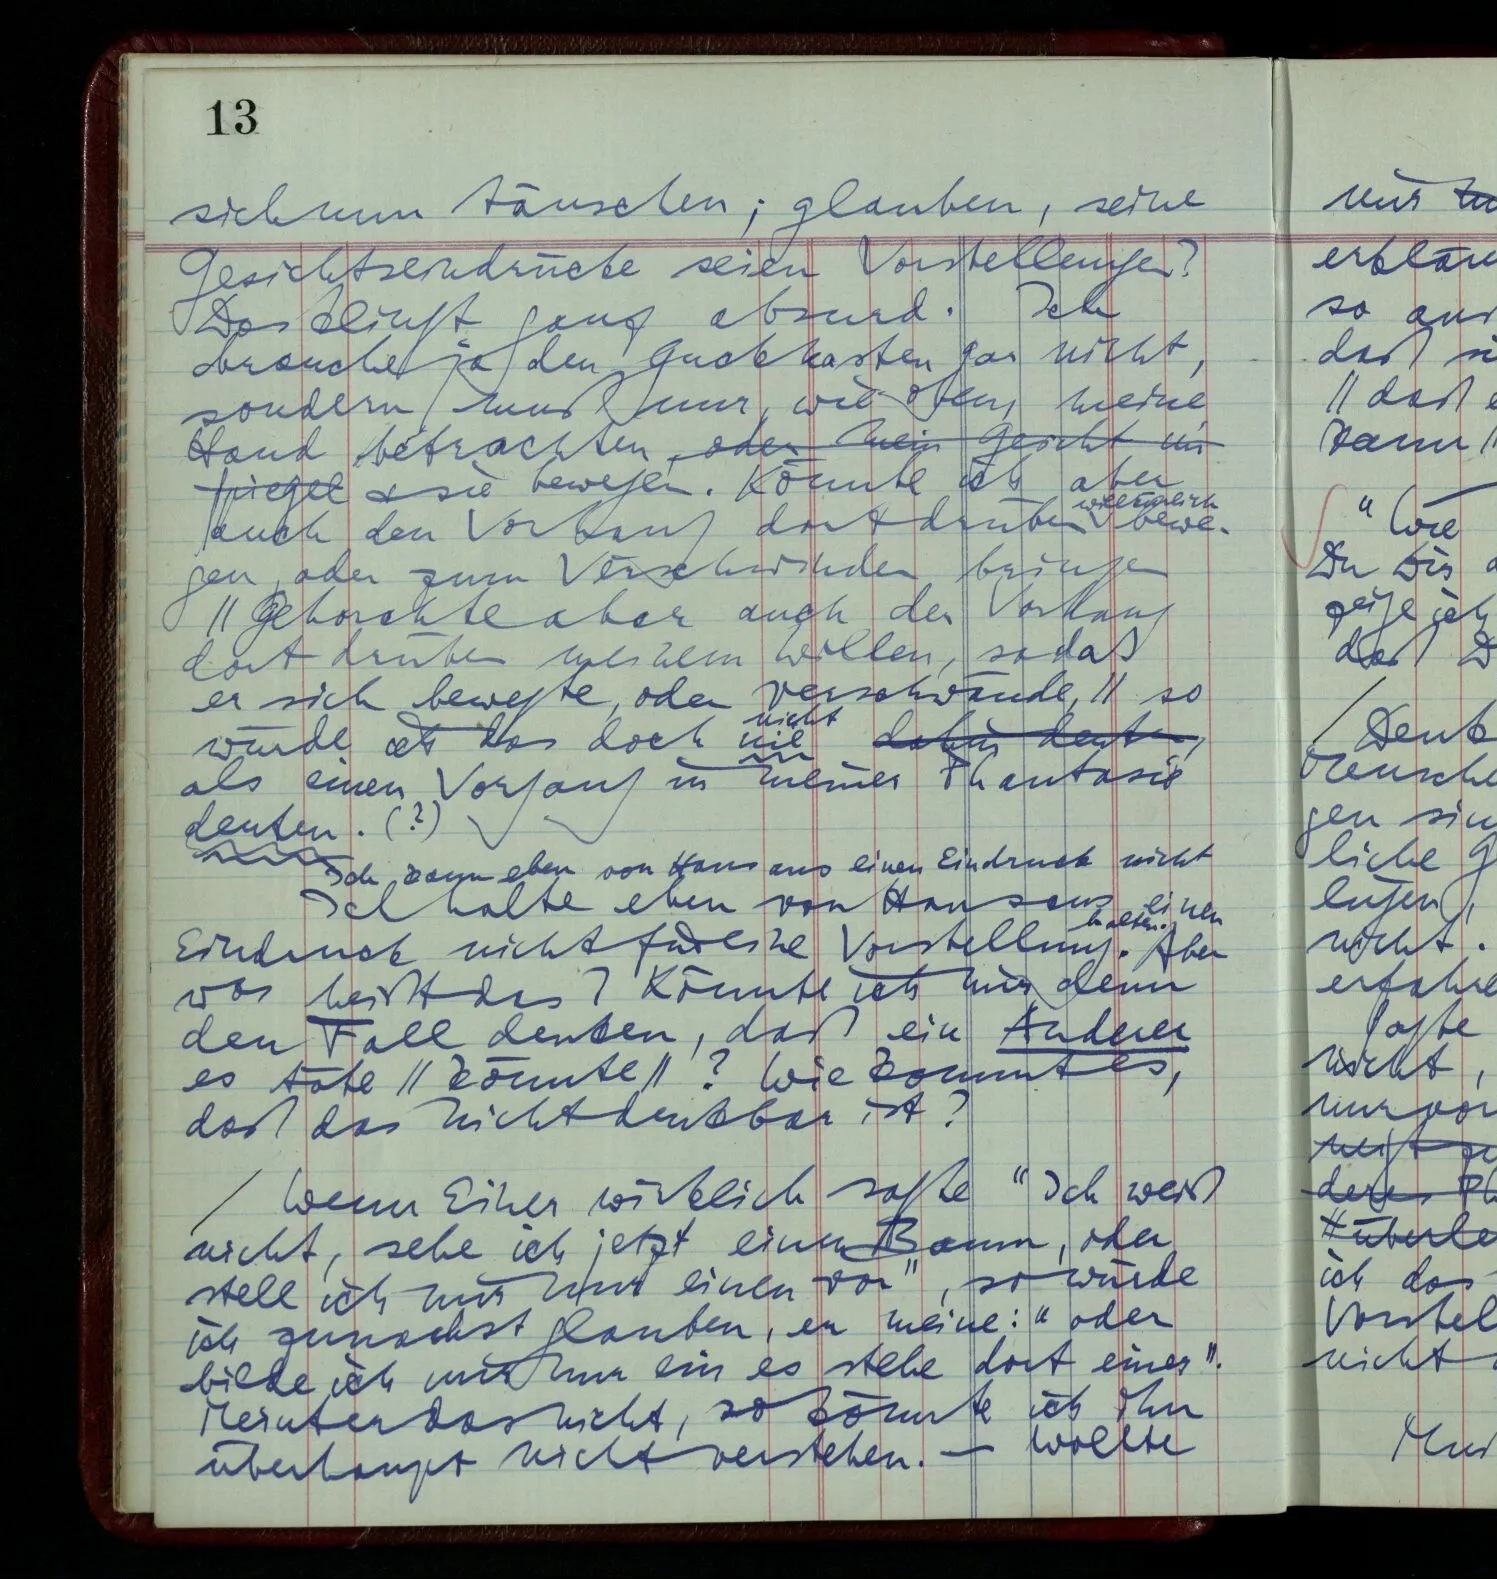 13
sich nun täuschen; glauben, seine
Gesichtseindrücke seien Vorstellungen?
Das klingt ganz absurd. Ich
brauche ja den Guckkasten gar nicht,
sondern muß nur, wie oben, meine
Hand betrachten, oder mein Gesicht im
Spiegel & sie bewegen. Könnte ich aber
willkürlich
auch den Vorhang dort drüben bewe-
gen, oder zum Verschwinden bringen
// Gehorchte aber auch der Vorhang
dort drüben meinem Willen, sodaß
er sich bewegte, oder verschwände, // so
nicht
würde ich das doch nie dahin deuten,
als einen Vorgang in meiner Phantasie
deuten. (?)
Ich kann eben von Haus aus einen Eindruck nicht
Ich halte eben von Haus aus einen
halten.
Eindruck nicht für eine Vorstellung. Aber
was heißt das? Könnte ich mir denn
den Fall denken, daß ein Anderer
es täte // könnte //? Wie kommt es,
daß das nicht denkbar ist?
/ Wenn Einer wirklich sagte "Ich weiß
nicht, sehe ich jetzt einen Baum, oder
stell ich mir nur einen vor", so würde
ich zunächst glauben, er meine: "oder
bilde ich mir nur ein es stehe dort einer".
Meint er das nicht, so könnte ich ihn
überhaupt nicht verstehen. — Wollte
nur
erklären
so
daß
// daß
kann //
"Wie
Du Dir
zeige ich
daß D
/ Denk
Mensche
gen sin
liche G
lügen,
nicht.
erfahre
sagte
nicht,
nur vor
ich das
Vorstel
nicht